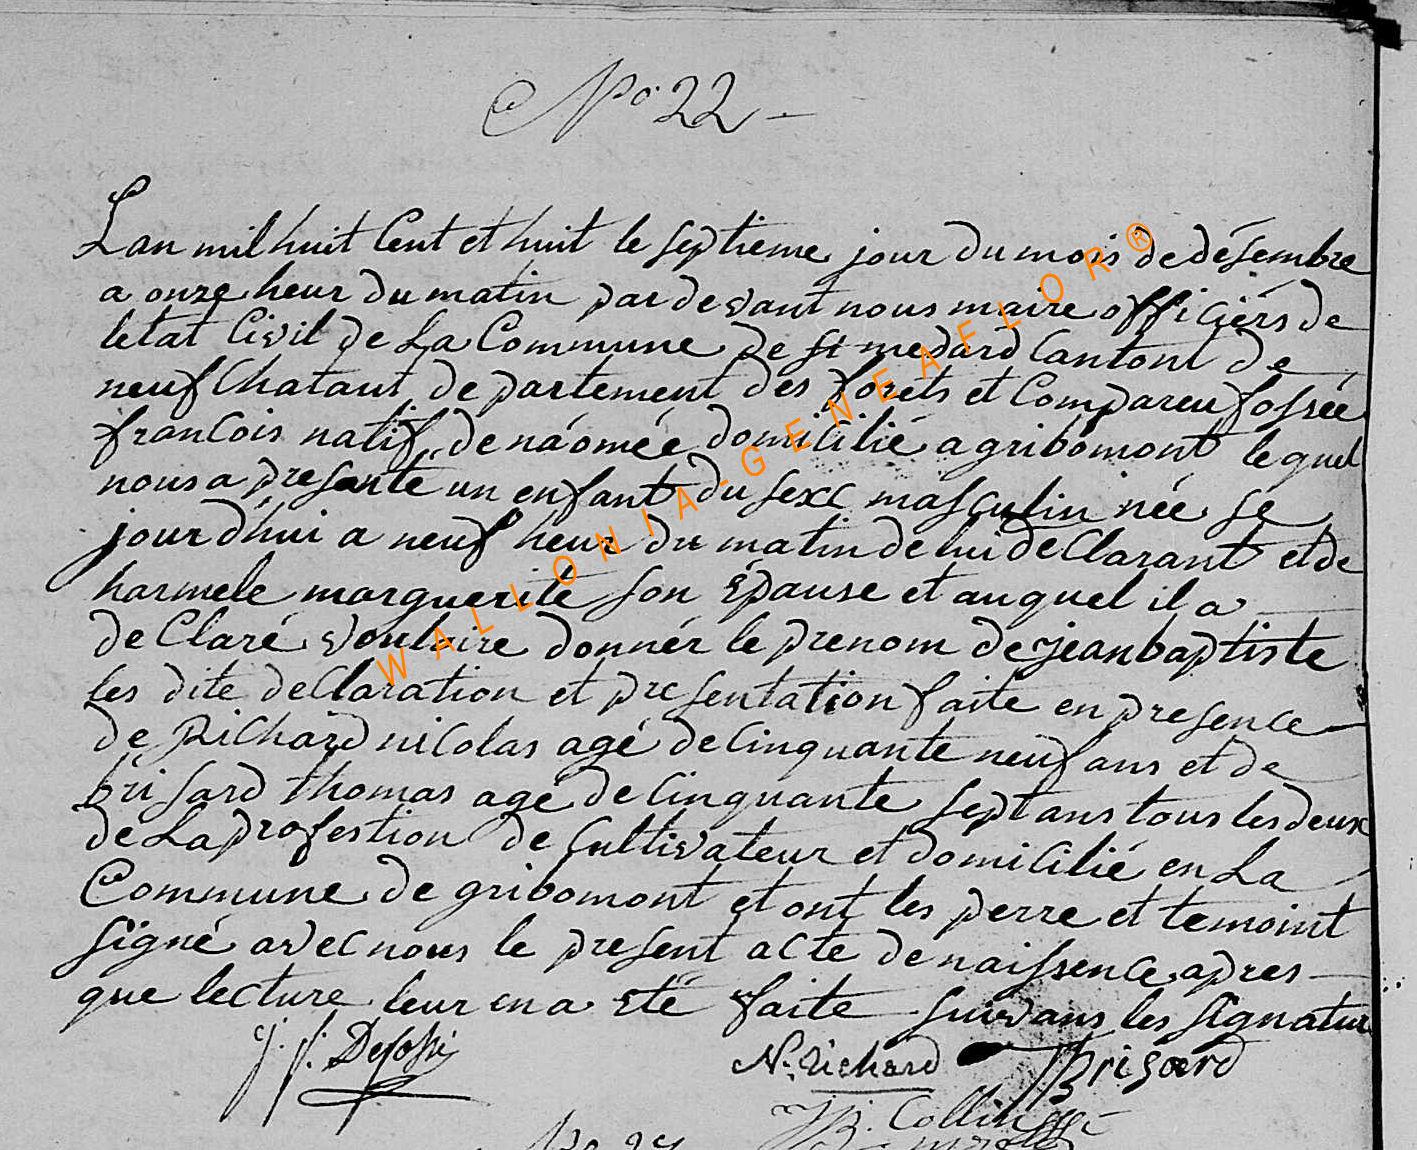 No. 22 -
Lan mil huit Cent et huit le septieme jour du mois de désembre
a onze heur du matin par devant nous maire officiérs de
letat Civil de La Commune de st medard Cantont de
neuf Chataut de partement des forets et Compareu fossée
francois natif de náomée domicilié a gribomont lequel
nous a presanté un enfant du sexe masculin née se
jourdhui a neuf heur du matin de lui de Clarant et de
harmele marguerite son épause et auquel il a
de Claré voulaire donnér le prenom de jean baptiste
les dite declaration et presentation faite en presence
de Richard nicolas agé de cinquante neuf ans et de
brisard thomas age de cinquante sept ans tous les deux
de La profestion de Cultivateur et domicilié en La
Commune de gribomont et ont les perre et temoint
signé avec nous le present acte de naissence apres
que lecture leur en a eté faite suivans les signatur
j. f. Defossé N. Richard Brisard
J B. Collin
WALLONIA-GENEAFLOR®